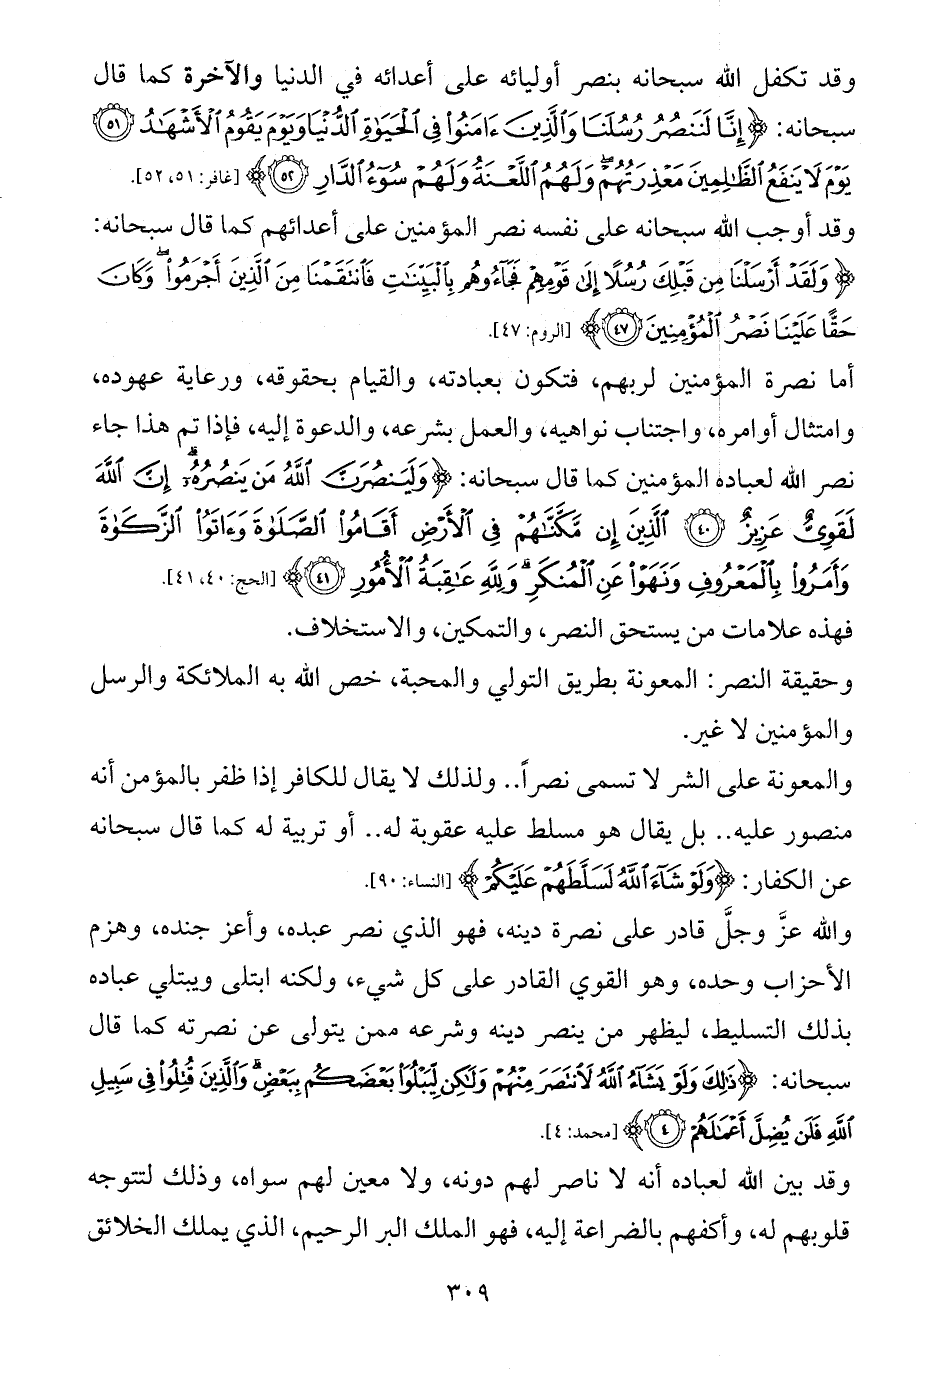 وقد تكفل الله سبحانه بنصر أوليائه على أعدائه في الدنيا والآخرة كما قال
سبحانه: ﴿إِنَّا لَنَنصُرُ رُسُلَنَا وَٱلَّذِينَ ءَامَنُوا۟ فِى ٱلْحَيَوٰةِ ٱلدُّنْيَا وَيَوْمَ يَقُومُ ٱلْأَشْهَـٰدُ ۝٥١
يَوْمَ لَا يَنفَعُ ٱلظَّـٰلِمِينَ مَعْذِرَتُهُمْ ۖ وَلَهُمُ ٱللَّعْنَةُ وَلَهُمْ سُوٓءُ ٱلدَّارِ ۝٥٢﴾ [غافر: ٥١، ٥٢].
وقد أوجب الله سبحانه على نفسه نصر المؤمنين على أعدائهم كما قال سبحانه:
﴿وَلَقَدْ أَرْسَلْنَا مِن قَبْلِكَ رُسُلًا إِلَىٰ قَوْمِهِمْ فَجَآءُوهُم بِٱلْبَيِّنَـٰتِ فَٱنتَقَمْنَا مِنَ ٱلَّذِينَ أَجْرَمُوا۟ ۖ وَكَانَ
حَقًّا عَلَيْنَا نَصْرُ ٱلْمُؤْمِنِينَ ۝٤٧﴾ [الروم: ٤٧].
أما نصرة المؤمنين لربهم، فتكون بعبادته، والقيام بحقوقه، ورعاية عهوده،
وامتثال أوامره، واجتناب نواهيه، والعمل بشرعه، والدعوة إليه، فإذا تم هذا جاء
نصر الله لعباده المؤمنين كما قال سبحانه: ﴿وَلَيَنصُرَنَّ ٱللَّهُ مَن يَنصُرُهُۥٓ ۗ إِنَّ ٱللَّهَ
لَقَوِىٌّ عَزِيزٌ ۝٤٠ ٱلَّذِينَ إِن مَّكَّنَّـٰهُمْ فِى ٱلْأَرْضِ أَقَامُوا۟ ٱلصَّلَوٰةَ وَءَاتَوُا۟ ٱلزَّكَوٰةَ
وَأَمَرُوا۟ بِٱلْمَعْرُوفِ وَنَهَوْا۟ عَنِ ٱلْمُنكَرِ ۗ وَلِلَّهِ عَـٰقِبَةُ ٱلْأُمُورِ ۝٤١﴾ [الحج: ٤٠، ٤١].
فهذه علامات من يستحق النصر، والتمكين، والاستخلاف.
وحقيقة النصر: المعونة بطريق التولي والمحبة، خص الله به الملائكة والرسل
والمؤمنين لا غير.
والمعونة على الشر لا تسمى نصراً.. ولذلك لا يقال للكافر إذا ظفر بالمؤمن أنه
منصور عليه.. بل يقال هو مسلط عليه عقوبة له.. أو تربية له كما قال سبحانه
عن الكفار: ﴿وَلَوْ شَآءَ ٱللَّهُ لَسَلَّطَهُمْ عَلَيْكُمْ﴾ [النساء: ٩٠].
والله عزَّ وجلَّ قادر على نصرة دينه، فهو الذي نصر عبده، وأعز جنده، وهزم
الأحزاب وحده، وهو القوي القادر على كل شيء، ولكنه ابتلى ويبتلي عباده
بذلك التسليط، ليظهر من ينصر دينه وشرعه ممن يتولى عن نصرته كما قال
سبحانه: ﴿ذَٰلِكَ وَلَوْ يَشَآءُ ٱللَّهُ لَٱنتَصَرَ مِنْهُمْ وَلَـٰكِن لِّيَبْلُوَا۟ بَعْضَكُم بِبَعْضٍ ۗ وَٱلَّذِينَ قُتِلُوا۟ فِى سَبِيلِ
ٱللَّهِ فَلَن يُضِلَّ أَعْمَـٰلَهُمْ ۝٤﴾ [محمد: ٤].
وقد بين الله لعباده أنه لا ناصر لهم دونه، ولا معين لهم سواه، وذلك لتتوجه
قلوبهم له، وأكفهم بالضراعة إليه، فهو الملك البر الرحيم، الذي يملك الخلائق
٣٠٩